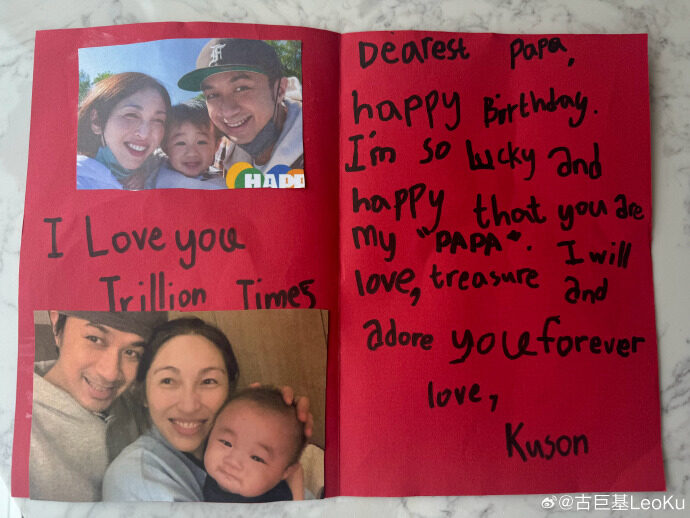 HAPP
I Love you
Trillion Times
Dearest Papa,
happy Birthday.
I'm so lucky and
happy that you are
my "PAPA". I will
love, treasure and
adore you forever
love,
Kuson
@古巨基LeoKu